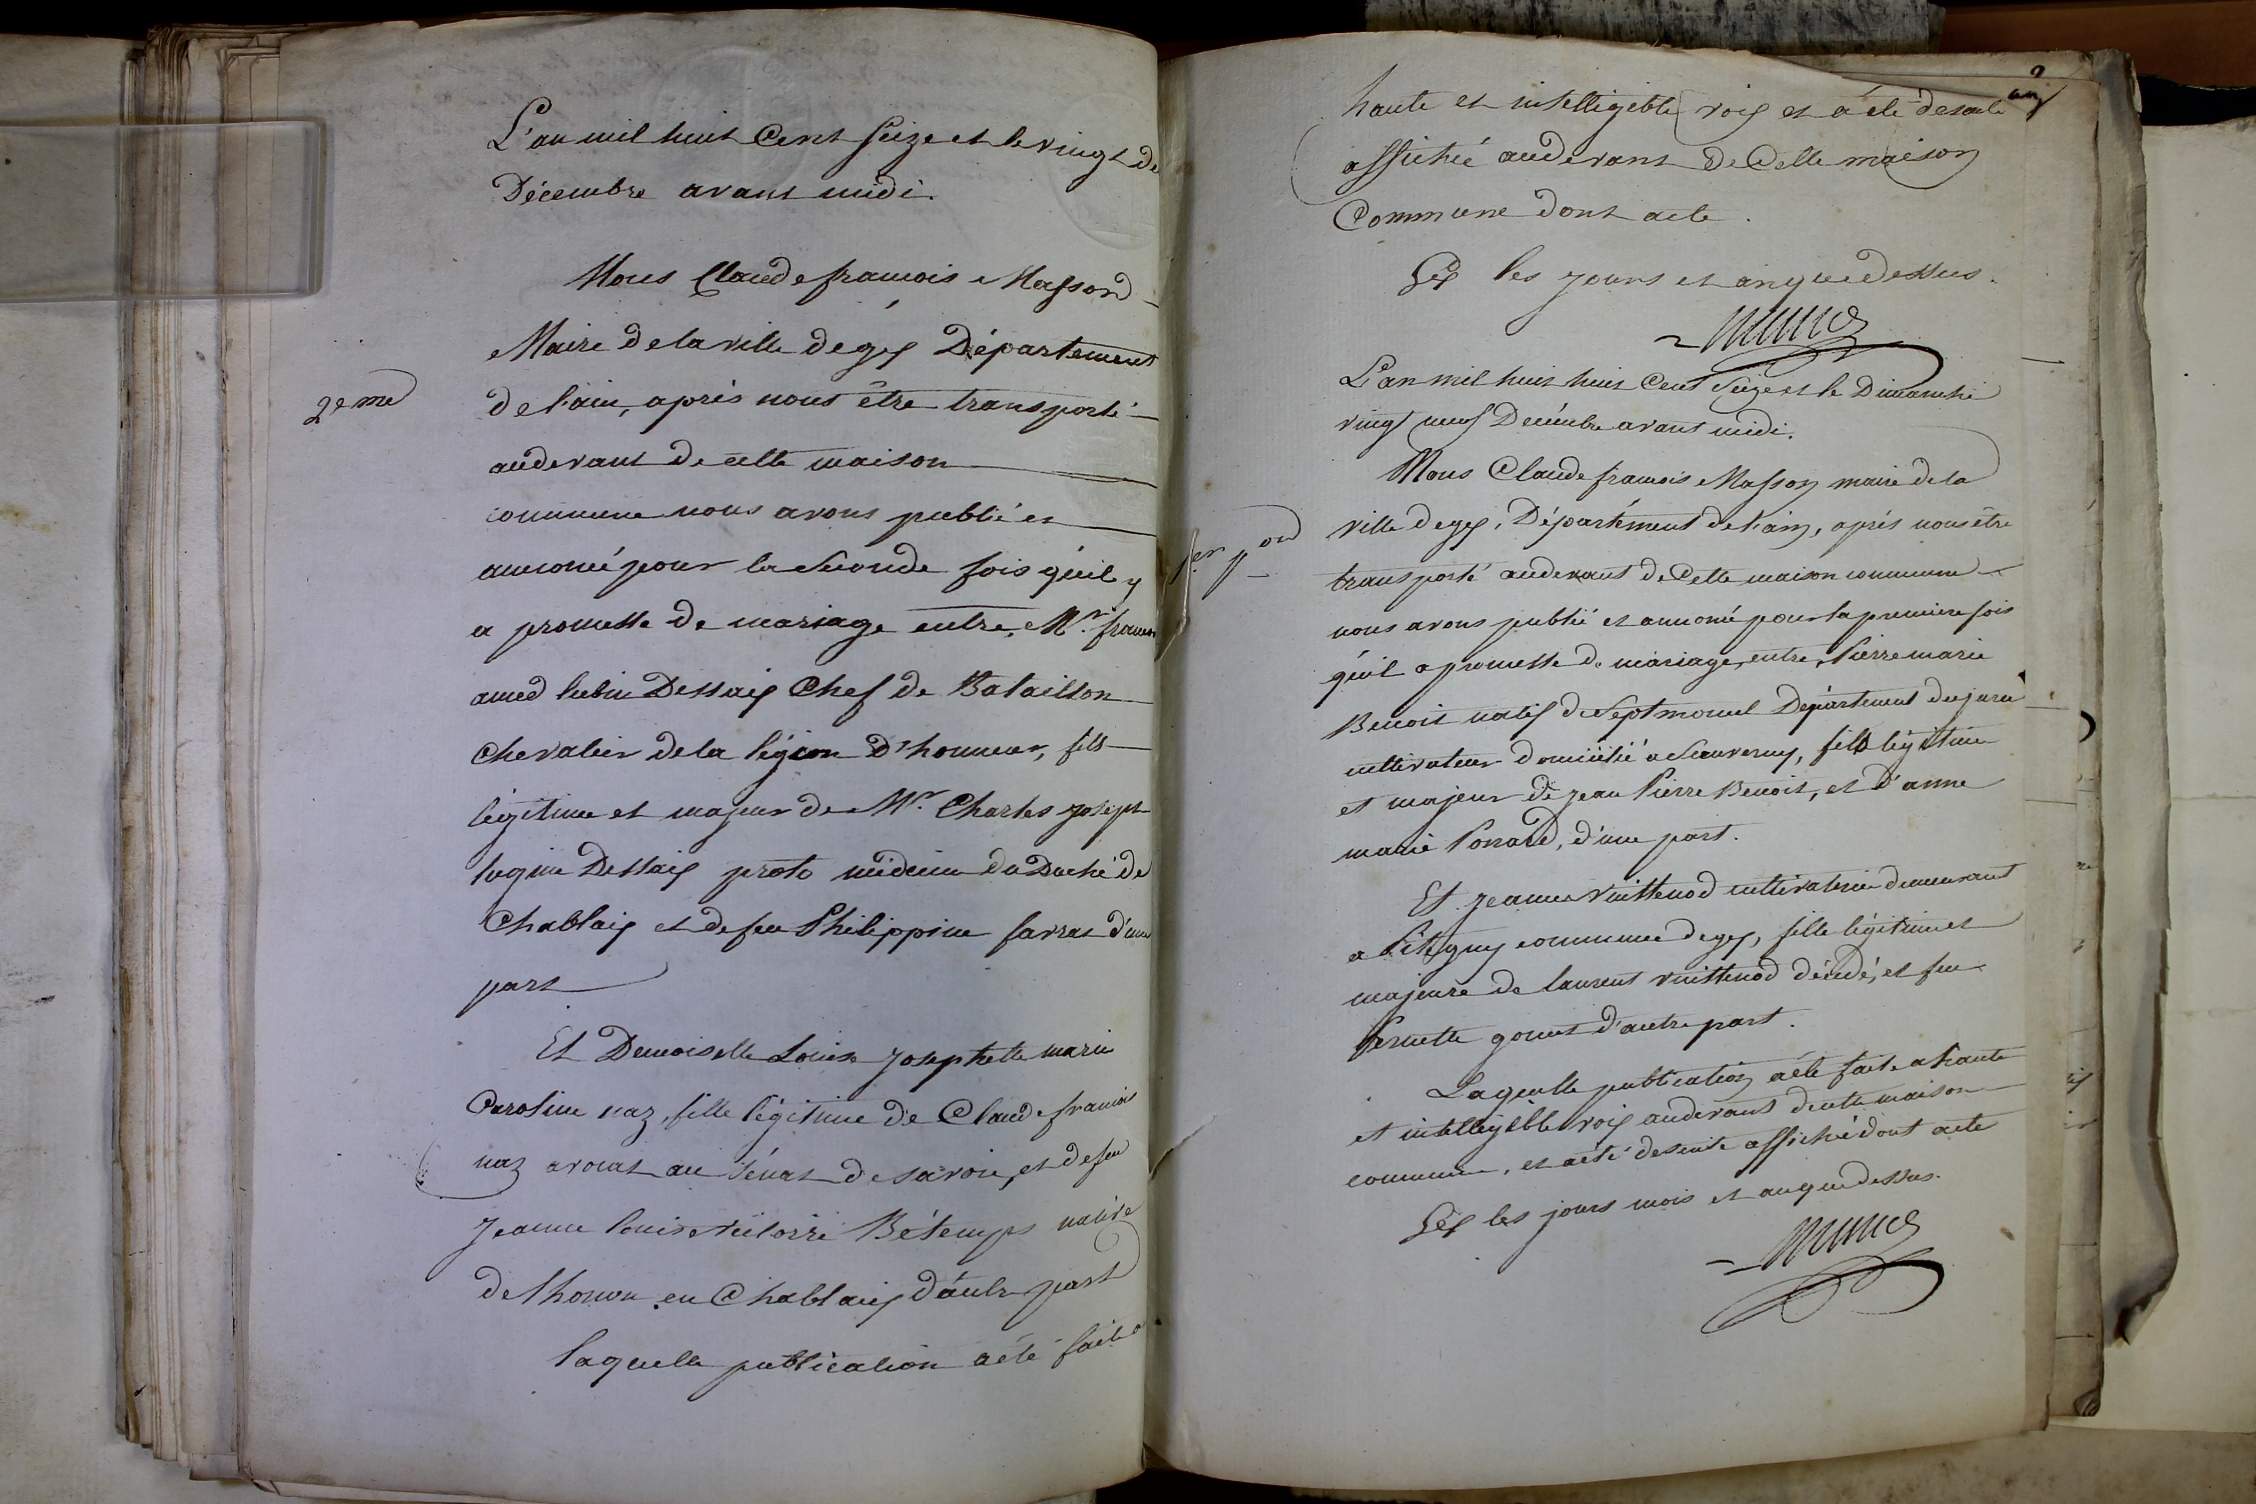 L'an mil huit Cent Seize et le vingt de
Décembre avant midi.
Nous Claude françois Masson
Maire de la ville de gex Département
2eme
de l'ain, après nous être transporté
audevant de cette maison
commune nous avons publié et
annoncé pour la seconde fois qu'il y
a promesse de mariage entre, Mr. françois
amed lubin Dessaix Chef de Bataillon
chevalier de la légion D'honneur, fils
légitime et majeur de Mr. Charles joseph
Dessaix proto médecin du Duché de
Chablaix et de feu Philippine favrat d'une
part
Et Demoiselle Louise Josephette marie
Caroline naz, fille légitime de Claude francois
naz avocat au sénat de savoie, et de feu
jeanne louise victoire Bétemps native
de thonon en Chablaix d'autre part
laquelle publication a été faite a
haute et intelligible voix et a été de suite
affiché audevant de Cette maison
Commune dont acte.
Gex les jours et an que dessus.
L'an mil huit huit Cent Seize et le Dimanche
vingt neuf Décembre avant midi.
Nous Claude francois Masson maire de la
1er pon
ville de gex, Département de l'ain, après nous être
transporté audevant de Cette maison commune
nous avons publié et annoncé pour la premiere fois
qu'il a promesse de mariage, entre, Pierre marie
Benoit natif de Septmoncel Département du jura
cultivateur domicilié a Sauverny, fils légitime
et majeur de Jean Pierre Benoit, et D'anne
marie Ponard, d'une part.
Et jeanne Vuittenod cultivatrice demeurant
a Pitegny commune de gex, fille légitime et
majeure de laurent Vuittenod décédé, et feu
Pernette gonet d'autre part.
Laquelle publication a été faite a haute
et intelligible voix audevant de cette maison
commune, et a été de suite affiché dont acte
Gex les jours mois et an que dessus.